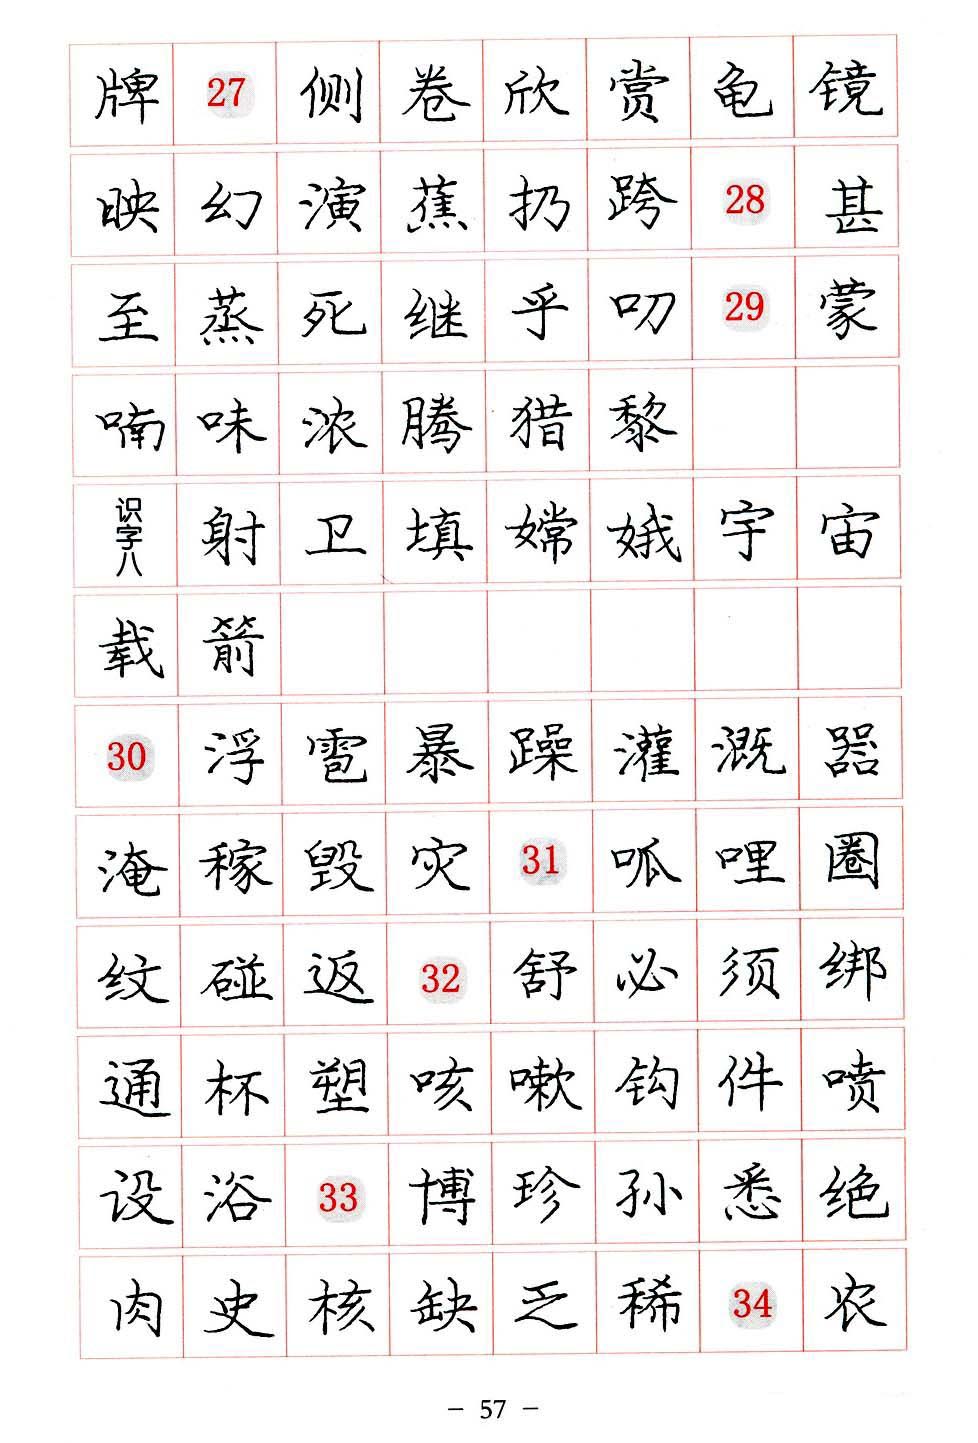 牌 27 侧 卷 欣 赏 龟 镜
映 幻 演 蕉 扔 跨 28 甚
至 蒸 死 继 乎 叨 29 蒙
喃 味 浓 腾 猎 黎
识字八 射 卫 填 嫦 娥 宇 宙
载 箭
30 浮 雹 暴 躁 灌 溉 器
淹 稼 毁 灾 31 呱 哩 圈
纹 碰 返 32 舒 必 须 绑
通 杯 塑 咳 嗽 钩 件 喷
设 浴 33 博 珍 孙 悉 绝
肉 史 核 缺 乏 稀 34 农
- 57 -